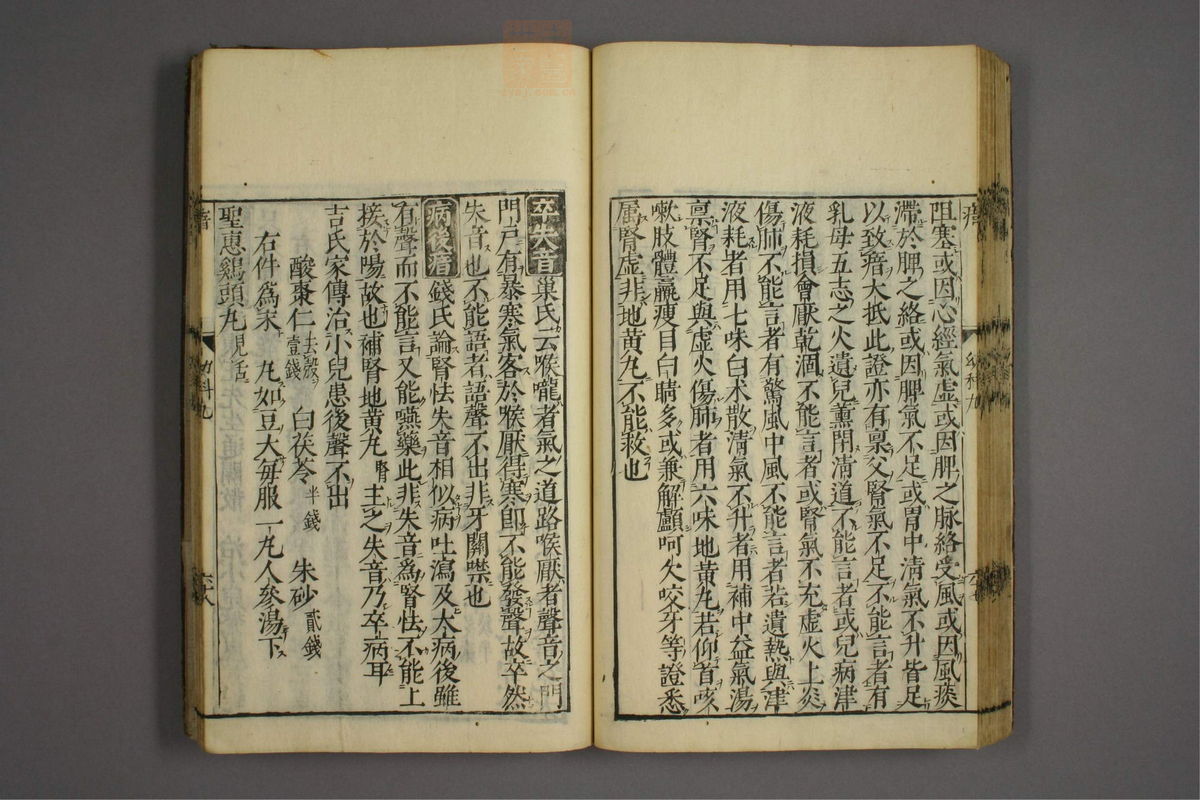 阻塞或因心經氣虛或因脾之脉絡受風或因風痰
滯於脾之絡或因脾氣不足或胃中清氣不升皆足
以致瘖大抵此證亦有稟父腎氣不足不能言者有
乳母五志之火遺兒薰閉清道不能言者或兒病津
液耗損會厭乾涸不能言者或腎氣不充虛火上炎
傷肺不能言者有驚風中風不能言者若遺熱與津
液耗者用七味白朮散清氣不升者用補中益氣湯
稟腎不足與虛火傷肺者用六味地黃丸若仰首咳
嗽肢體羸瘦目白睛多或兼解顱呵欠咬牙等證悉
属腎虛非地黃丸不能救也
瘖
幼科九
卒失音巢氏云喉嚨者氣之道路喉厭者聲音之門
門戸有暴寒氣客於喉厭得寒即不能發聲故卒然
失音也不能語者語聲不出非牙關噤也
病後瘖錢氏論腎怯失音相似病吐瀉及大病後雖
有聲而不能言又能嚥藥此非失音為腎怯不能上
接於陽故也補腎地黃丸腎主之失音乃卒病耳
吉氏家傳治小兒患後聲不出
酸棗仁去殼壹錢 白茯苓半錢 朱砂貳錢
右件為末 丸如豆大每服一丸人參湯下
聖惠鷄頭丸
瘖
幼科九
六八